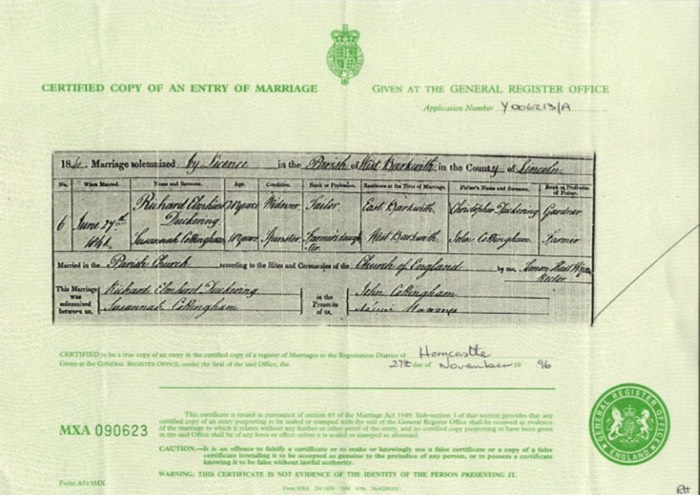 CERTIFIED COPY OF AN ENTRY OF MARRIAGE
GIVEN AT THE GENERAL REGISTER OFFICE
Application Number Y006213/A
184. Marriage solemnized by Licence in the Parish of West Barkwith in the County of Lincoln
No. When Married. Name and Surname. Age. Condition. Rank or Profession. Residence at the Time of Marriage. Father's Name and Surname. Rank or Profession of Father.
6 June 27th Richard Duckering years Widower Tailor East Barkwith Christopher Duckering Gardner
Susannah Cottingham years Spinster Farmer's daughter West Barkwith John Cottingham Farmer
Married in the Parish Church according to the Rites and Ceremonies of the Church of England by me, Rector
This Marriage was solemnized between us, Richard Duckering in the Presence of us, John Cottingham
Susannah Cottingham
CERTIFIED to be a true copy of an entry in the certified copy of a register of Marriages in the Registration District of Horncastle
Given at the GENERAL REGISTER OFFICE, under the Seal of the said Office, the 27th day of November 19 96
MXA 090623
This certificate is issued in pursuance of section 65 of the Marriage Act 1949. Sub-section 3 of that section provides that any
certified copy of an entry purporting to be sealed or stamped with the seal of the General Register Office shall be received as evidence
of the marriage to which it relates without any further or other proof of the entry, and no certified copy purporting to have been given
in the said Office shall be of any force or effect unless it is sealed or stamped as aforesaid.
CAUTION.—It is an offence to falsify a certificate or to make or knowingly use a false certificate or a copy of a false
certificate intending it to be accepted as genuine to the prejudice of any person, or to possess a certificate
knowing it to be false without lawful authority.
WARNING: THIS CERTIFICATE IS NOT EVIDENCE OF THE IDENTITY OF THE PERSON PRESENTING IT.
GENERAL REGISTER OFFICE
ENGLAND